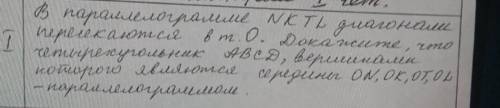 В параллелограмме NKTL диагонали
I
пересекаются в т. О. Докажите, что
четырехугольник ABCD, вершинами
которого являются середины ON, OK, OT, OL
- параллелограммом.